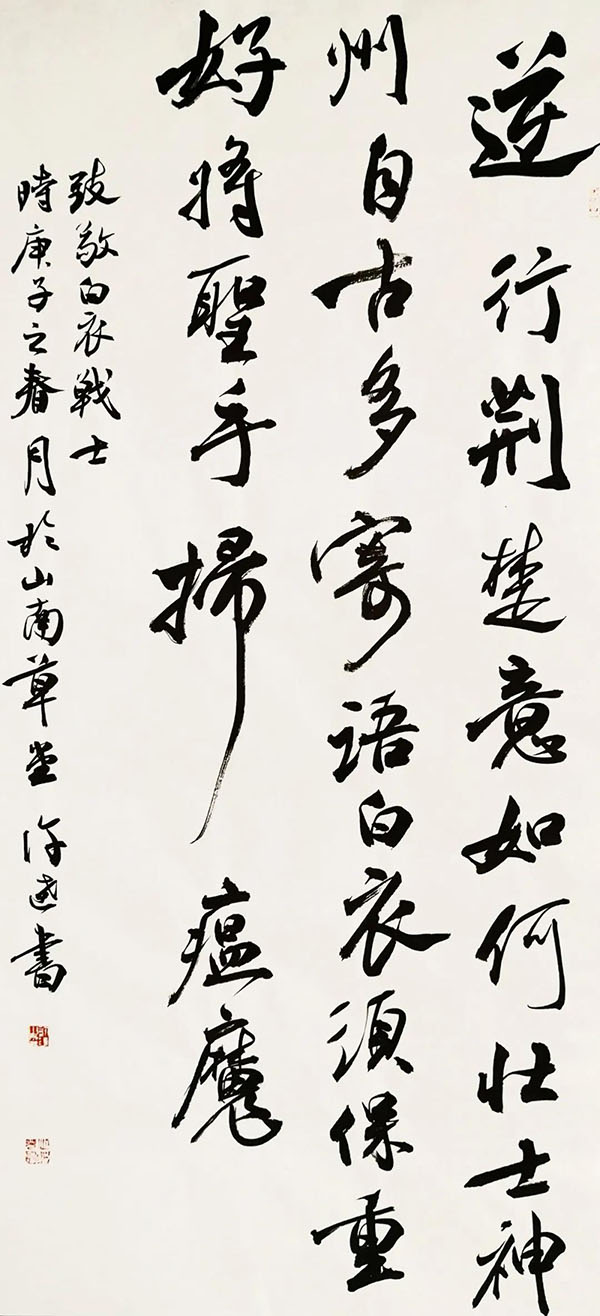 逆行荆楚意如何壮士神
州自古多寄语白衣須保重
好将聖手掃瘟魔
致敬白衣戰士
時庚子之春月於山南草堂 書